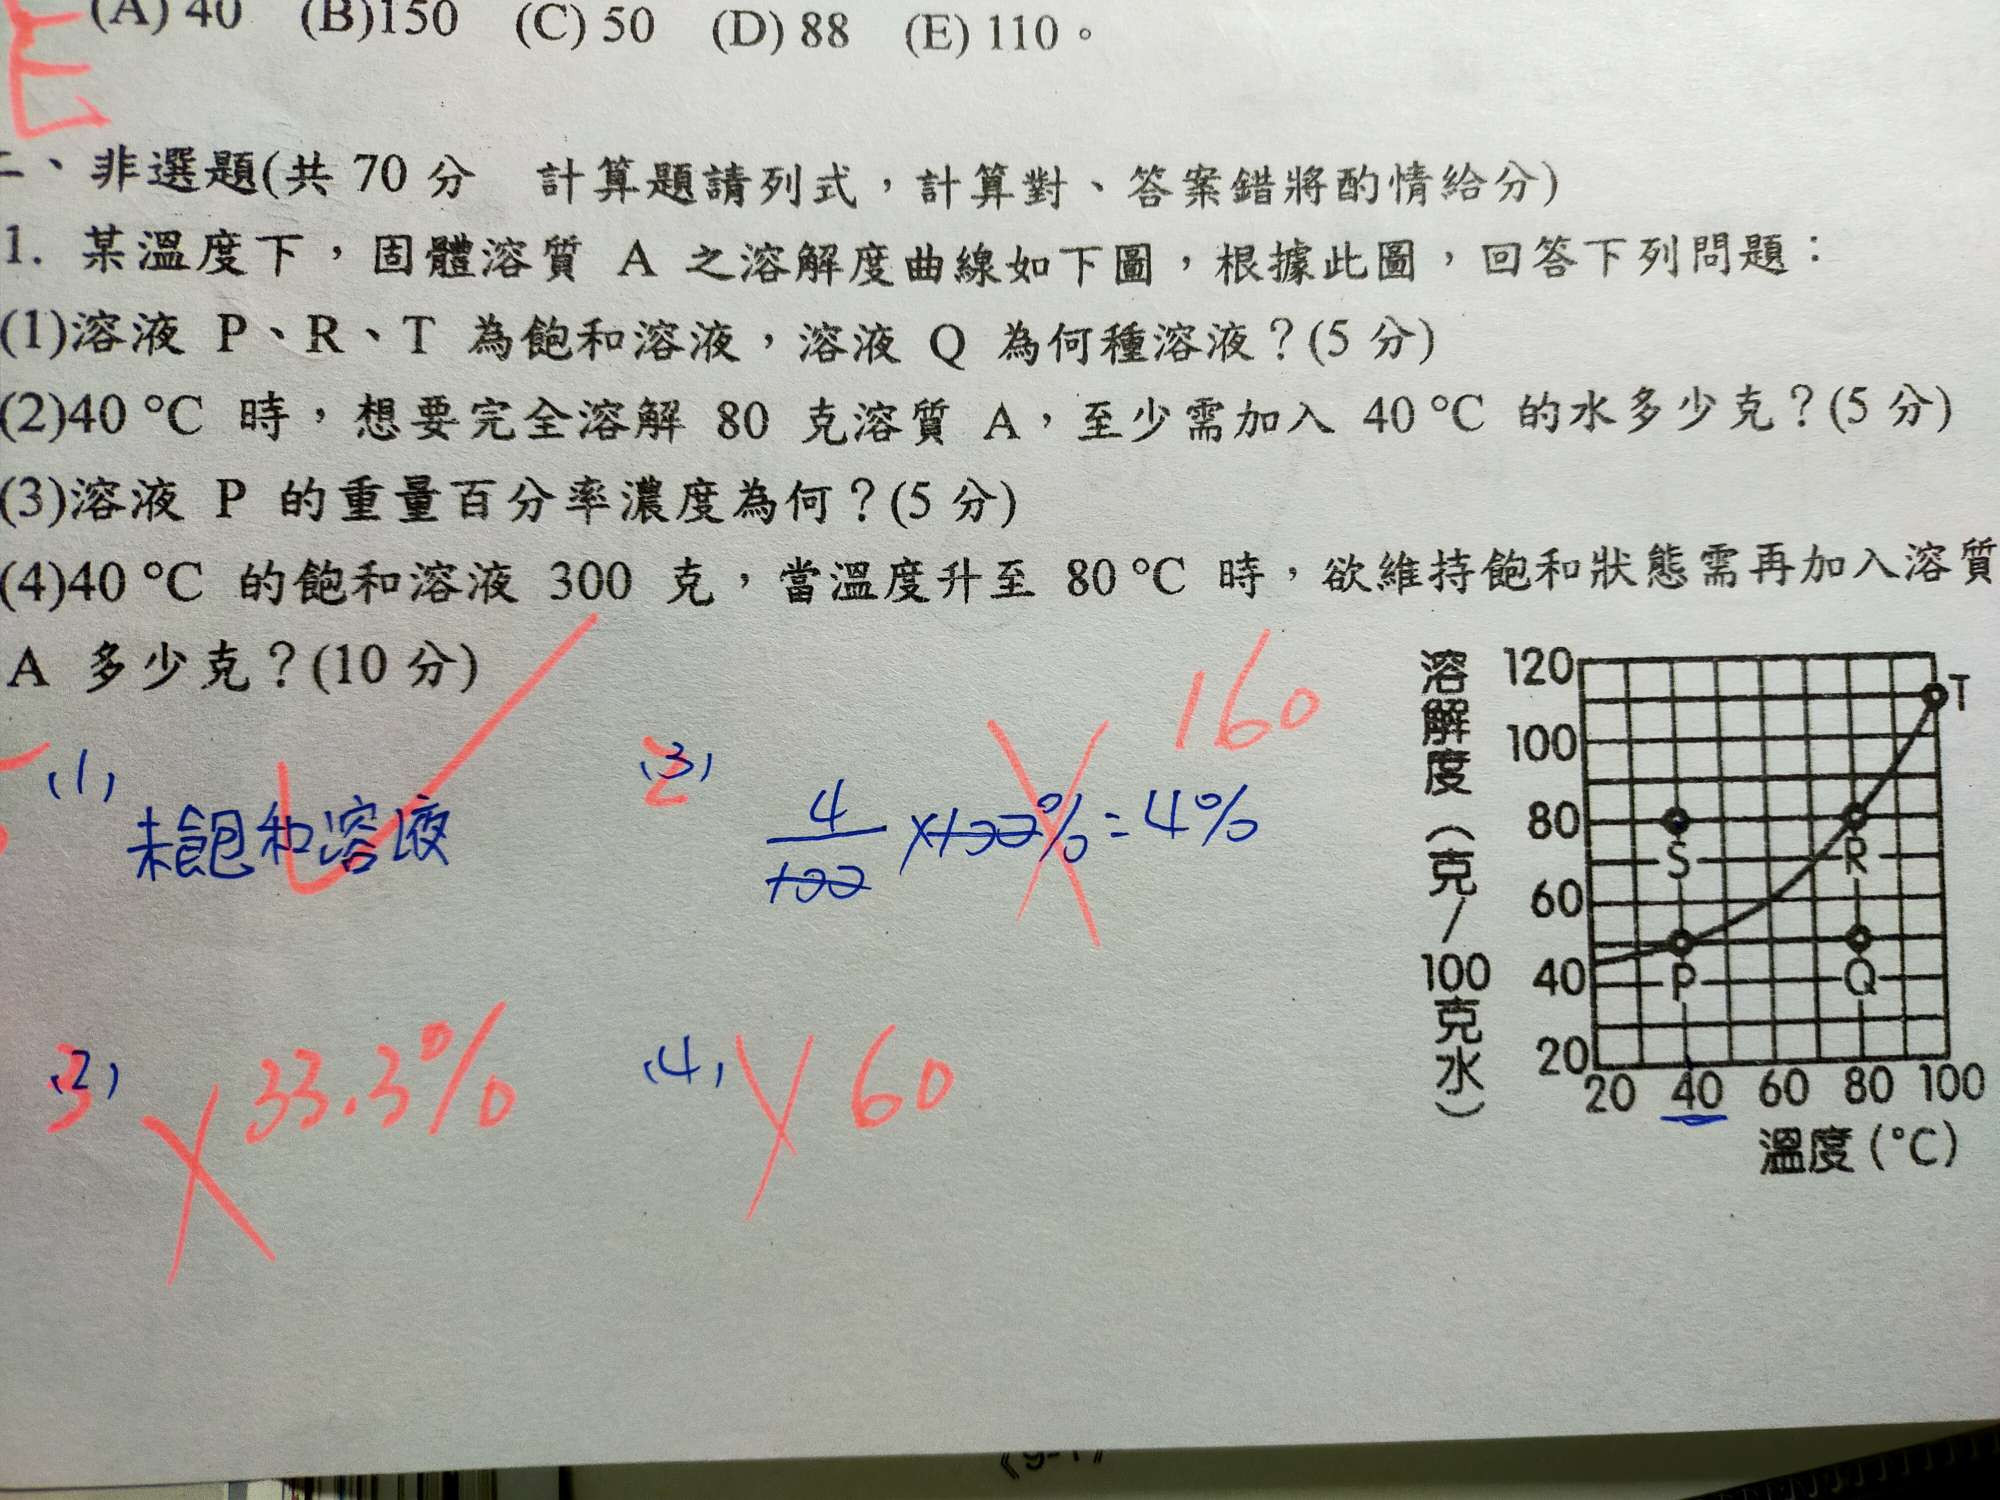 (A) 40 (B)150 (C) 50 (D) 88 (E) 110。
E
二、非選題(共 70 分 計算題請列式，計算對、答案錯將酌情給分)
1. 某溫度下，固體溶質 A 之溶解度曲線如下圖，根據此圖，回答下列問題：
(1)溶液 P、R、T 為飽和溶液，溶液 Q 為何種溶液？(5 分)
(2)40 °C 時，想要完全溶解 80 克溶質 A，至少需加入 40 °C 的水多少克？(5 分)
(3)溶液 P 的重量百分率濃度為何？(5 分)
(4)40 °C 的飽和溶液 300 克，當溫度升至 80 °C 時，欲維持飽和狀態需再加入溶質
A 多少克？(10 分)
(1) 未飽和溶液
2 (3) 160
4/100 ×100% = 4%
3 (2) 33.3%
(4) 60
溶解度(克/100克水)
120
100
80
60
40
20
T
S
R
P
Q
20 40 60 80 100
溫度(°C)